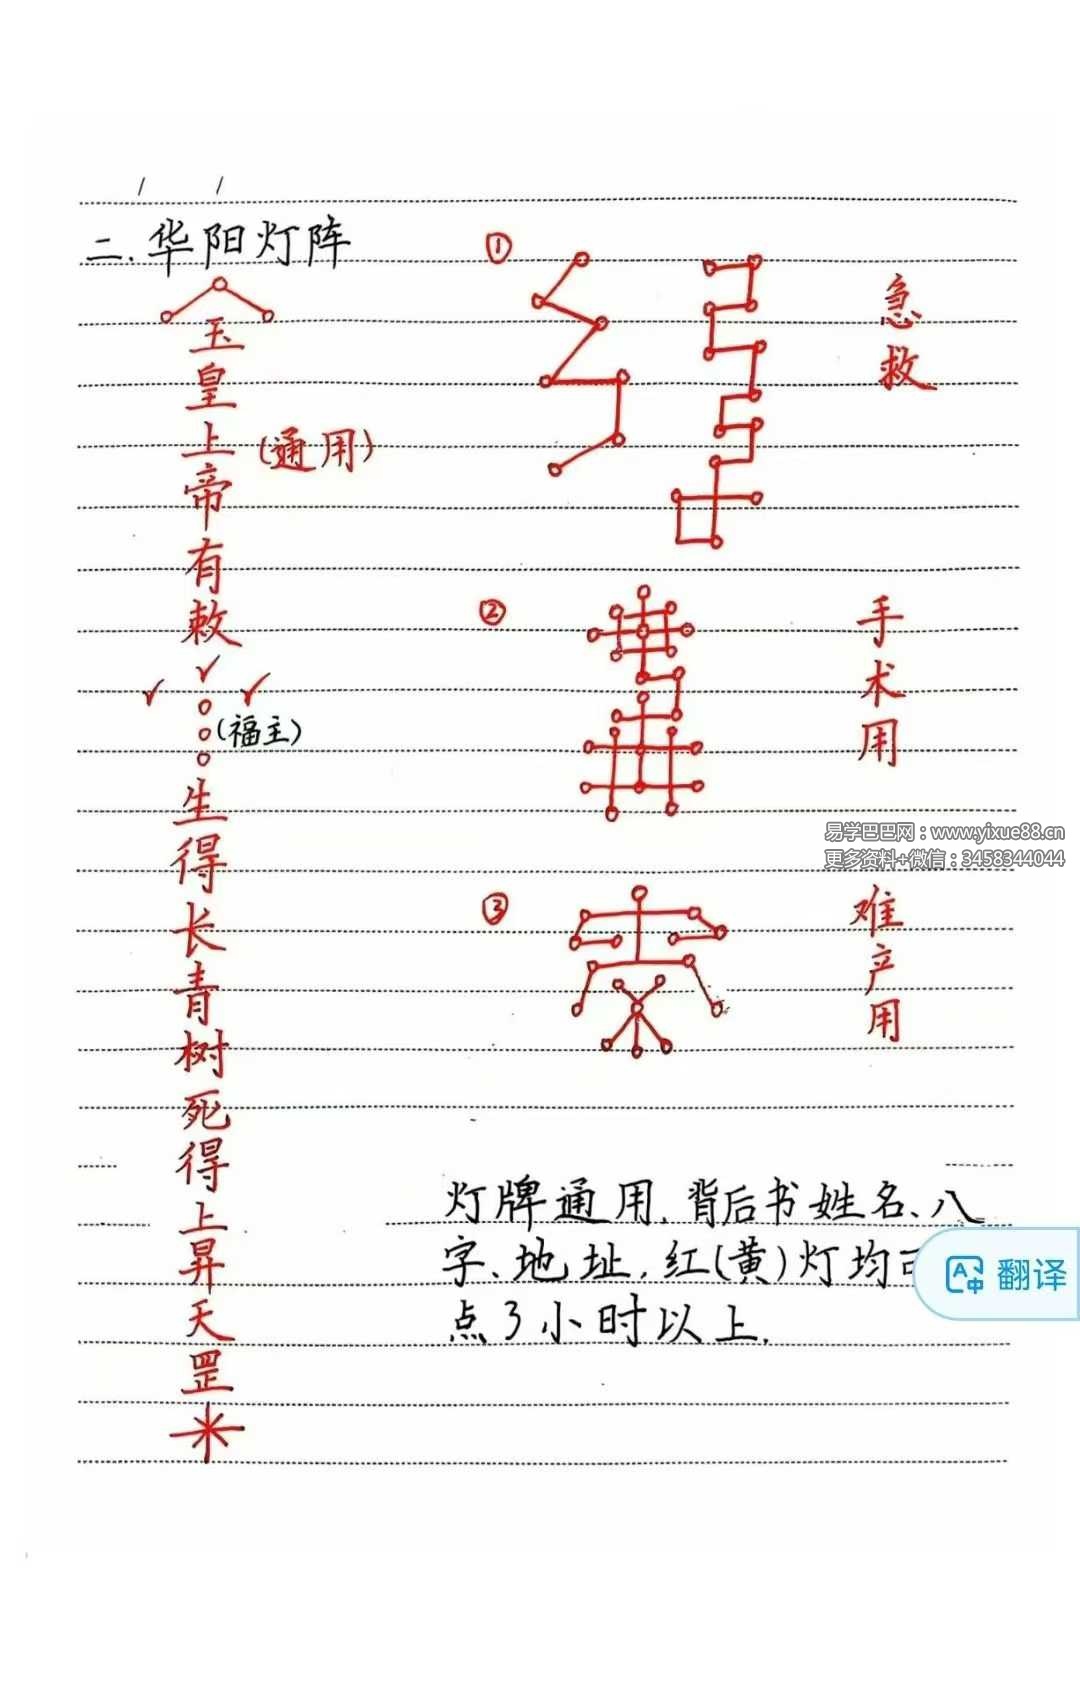 二.华阳灯阵
玉皇上帝有敕
(通用)
(福主)
生得长青树死得上昇天罡
①
急救
②
手术用
易学巴巴网：www.yixue88.cn
更多资料+微信：3458344044
③
难产用
灯牌通用.背后书姓名、八
字、地址,红(黄)灯均
点3小时以上.
翻译